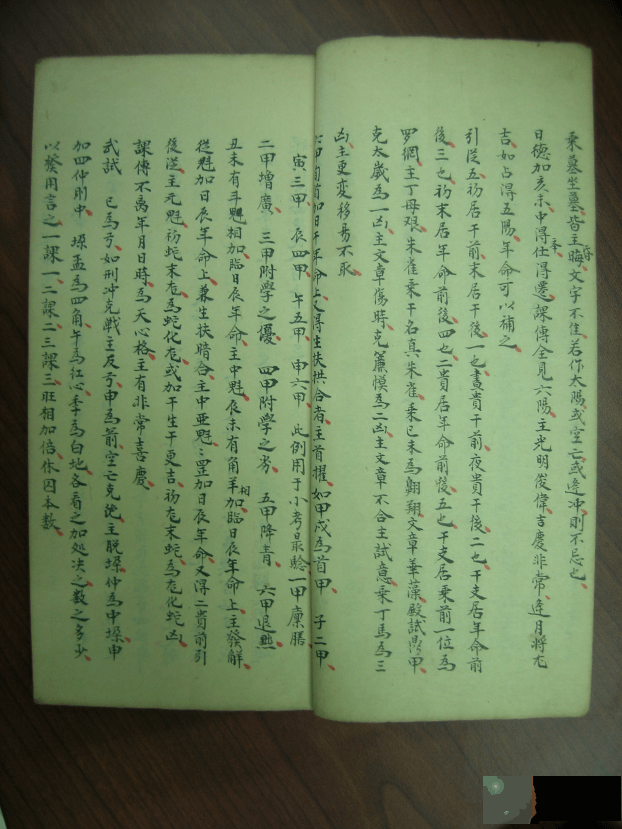 乘墓坐墓皆主晦文字不佳若作太陽或空亡或逢冲則不忌也
日德加亥未中得仕得遷課傳全見六陽主光明俊偉吉慶非常逢月將尤
吉如占得五陽年命可以補之
引從五初居干前末居干後一也晝貴干前夜貴干後二也干支居年命前
後三也初末居年命前後四也二貴居年命前後五也干支居乘前一位為
罗網主丁母艰朱雀乘干名真朱雀乘巳未為翺翔文章華藻殿試鼎甲
克太歲為一凶主文章傷時克簾幙為二凶主文章不合主試意乘丁馬為三
凶主更變移易不永
六甲旬首加日干年命上又得生扶拱合者主首擢如甲戌為首甲 子二甲
寅三甲 辰四甲 午五甲 申六甲 此例用于小考最驗一甲廩膳
二甲增廣 三甲附學之優 四甲附學之劣 五甲降青 六甲退黜
丑未有斗魁相加臨日辰年命主中魁辰未有角羊相加臨日辰年命上主發解
從魁加日辰年命上兼生扶暗合主中亚魁二罡加日辰年命又得二貴前引
後從主元魁初蛇末龙為蛇化龙或加干生干更吉初龙末蛇為龙化蛇凶
課傳不离年月日時為天心格主有非常喜慶
武試 巳為弓如刑冲克戰主反弓申為箭空亡克洩主脱垜仲為中垜申
加四仲則中 垜孟為四角午為红心季為白地各看之加処决之数之多少
以發用言之一課一二課二三課三旺相加倍休囚本数